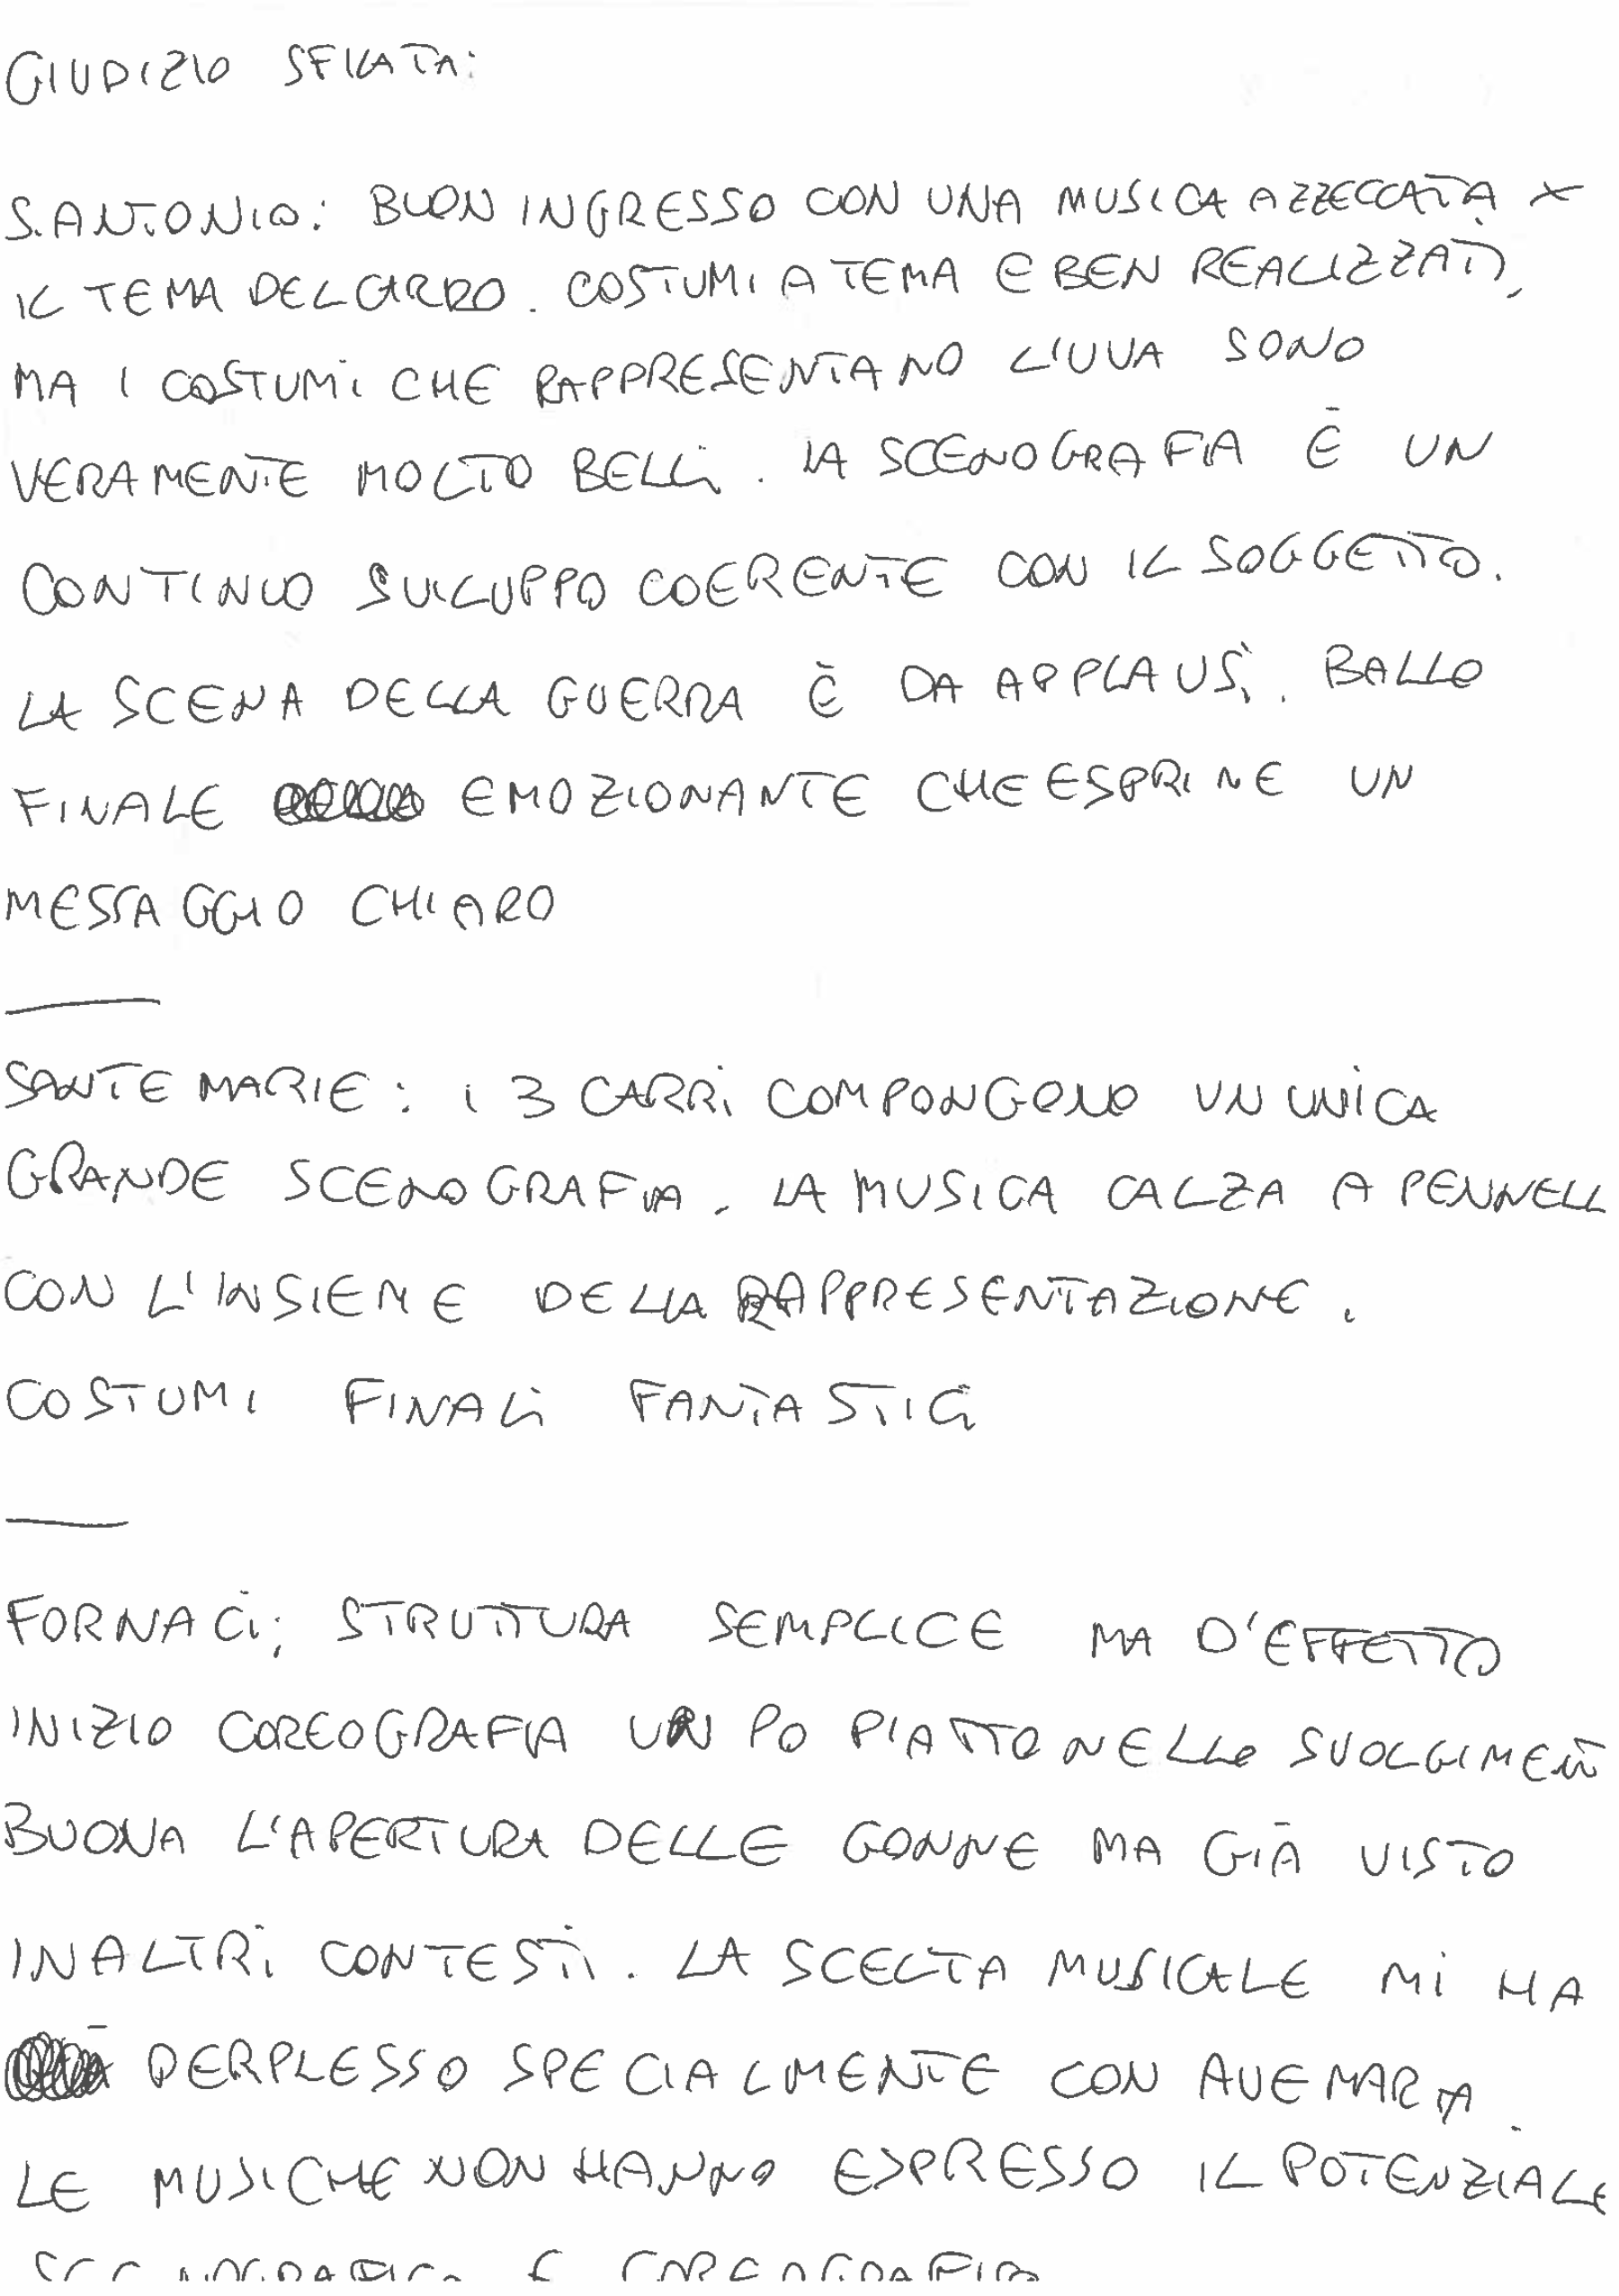 GIUDIZIO SFILATA:
S. ANTONIO: BUON INGRESSO CON UNA MUSICA AZZECCATA X
IL TEMA DEL CARRO. COSTUMI A TEMA E BEN REALIZZATI,
MA I COSTUMI CHE RAPPRESENTANO L'UVA SONO
VERAMENTE MOLTO BELLI. LA SCENOGRAFIA È UN
CONTINUO SVILUPPO COERENTE CON IL SOGGETTO.
LA SCENA DELLA GUERRA È DA APPLAUSI. BALLO
FINALE EMOZIONANTE CHE ESPRIME UN
MESSAGGIO CHIARO
SANTE MARIE: I 3 CARRI COMPONGONO UN UNICA
GRANDE SCENOGRAFIA. LA MUSICA CALZA A PENNELL
CON L'INSIEME DELLA RAPPRESENTAZIONE.
COSTUMI FINALI FANTASTICI
FORNACI; STRUTTURA SEMPLICE MA D'EFFETTO
INIZIO COREOGRAFIA UN PO PIATTO NELLO SVOLGIMENT
BUONA L'APERTURA DELLE GONNE MA GIÀ VISTO
IN ALTRI CONTESTI. LA SCELTA MUSICALE MI HA
PERPLESSO SPECIALMENTE CON AVE MARIA.
LE MUSICHE NON HANNO ESPRESSO IL POTENZIALE